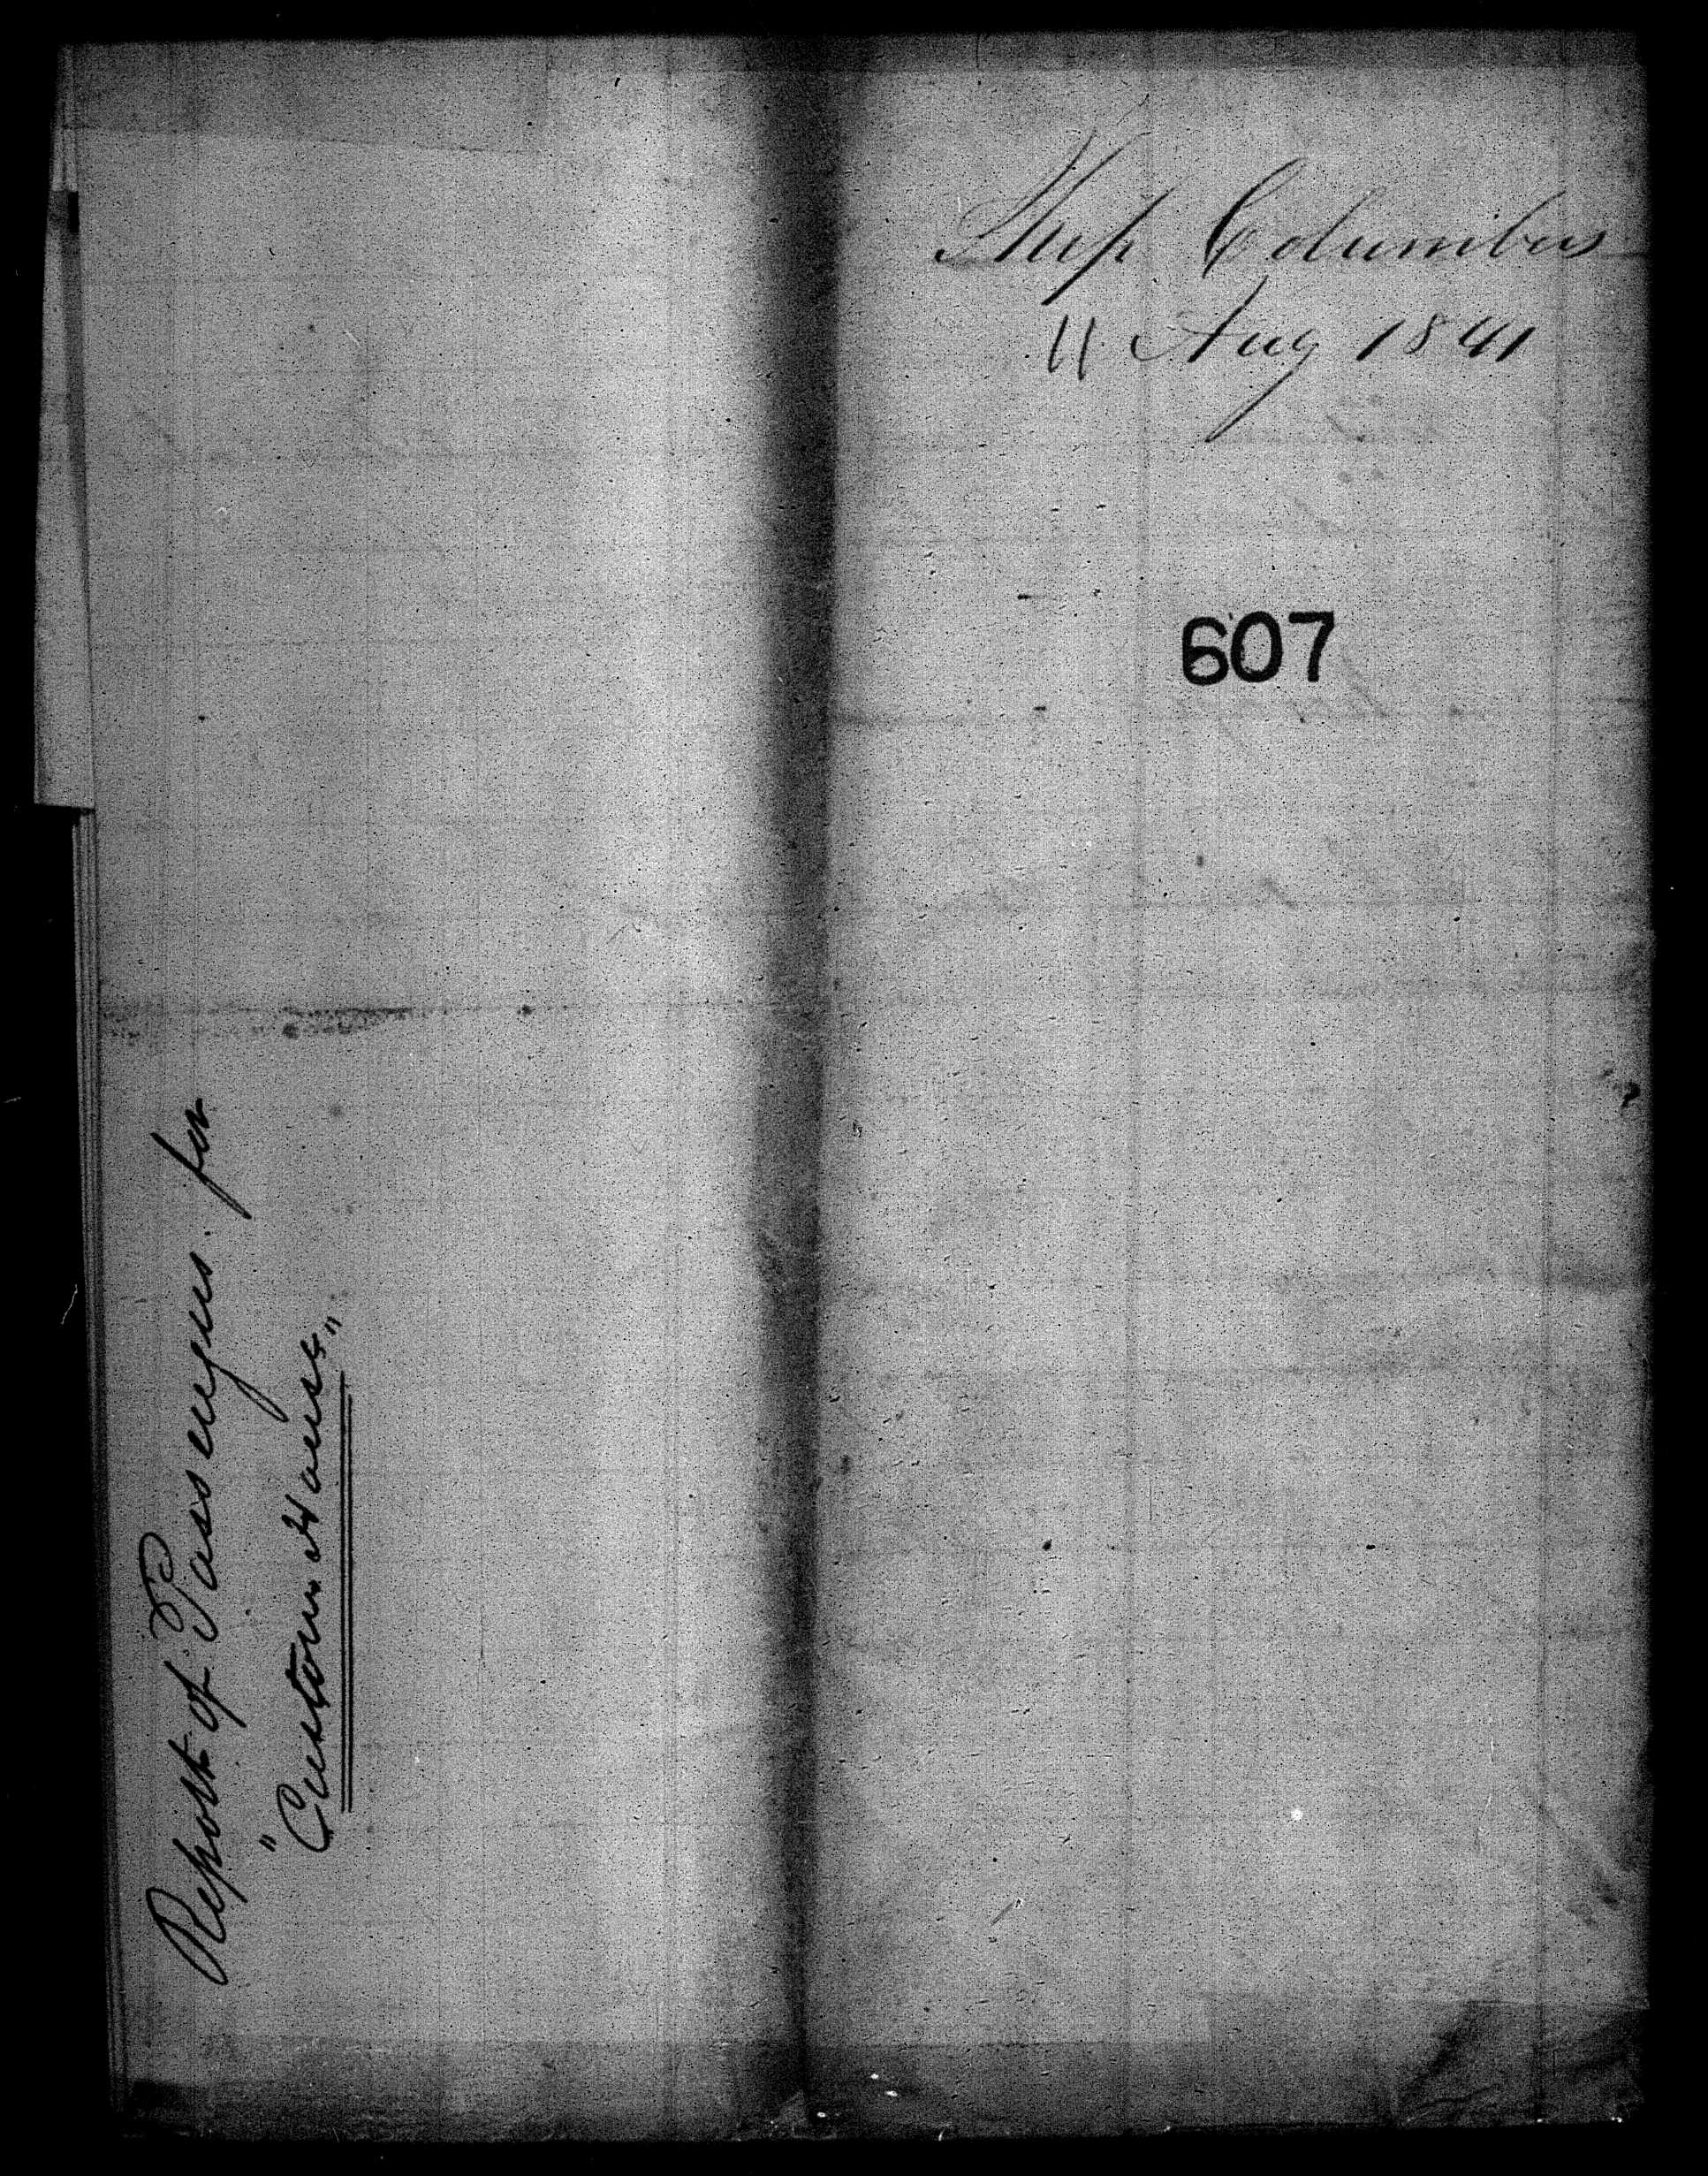 Ship Columbus
11 Aug 1841
607
Report of Passengers. for
"Custom House"